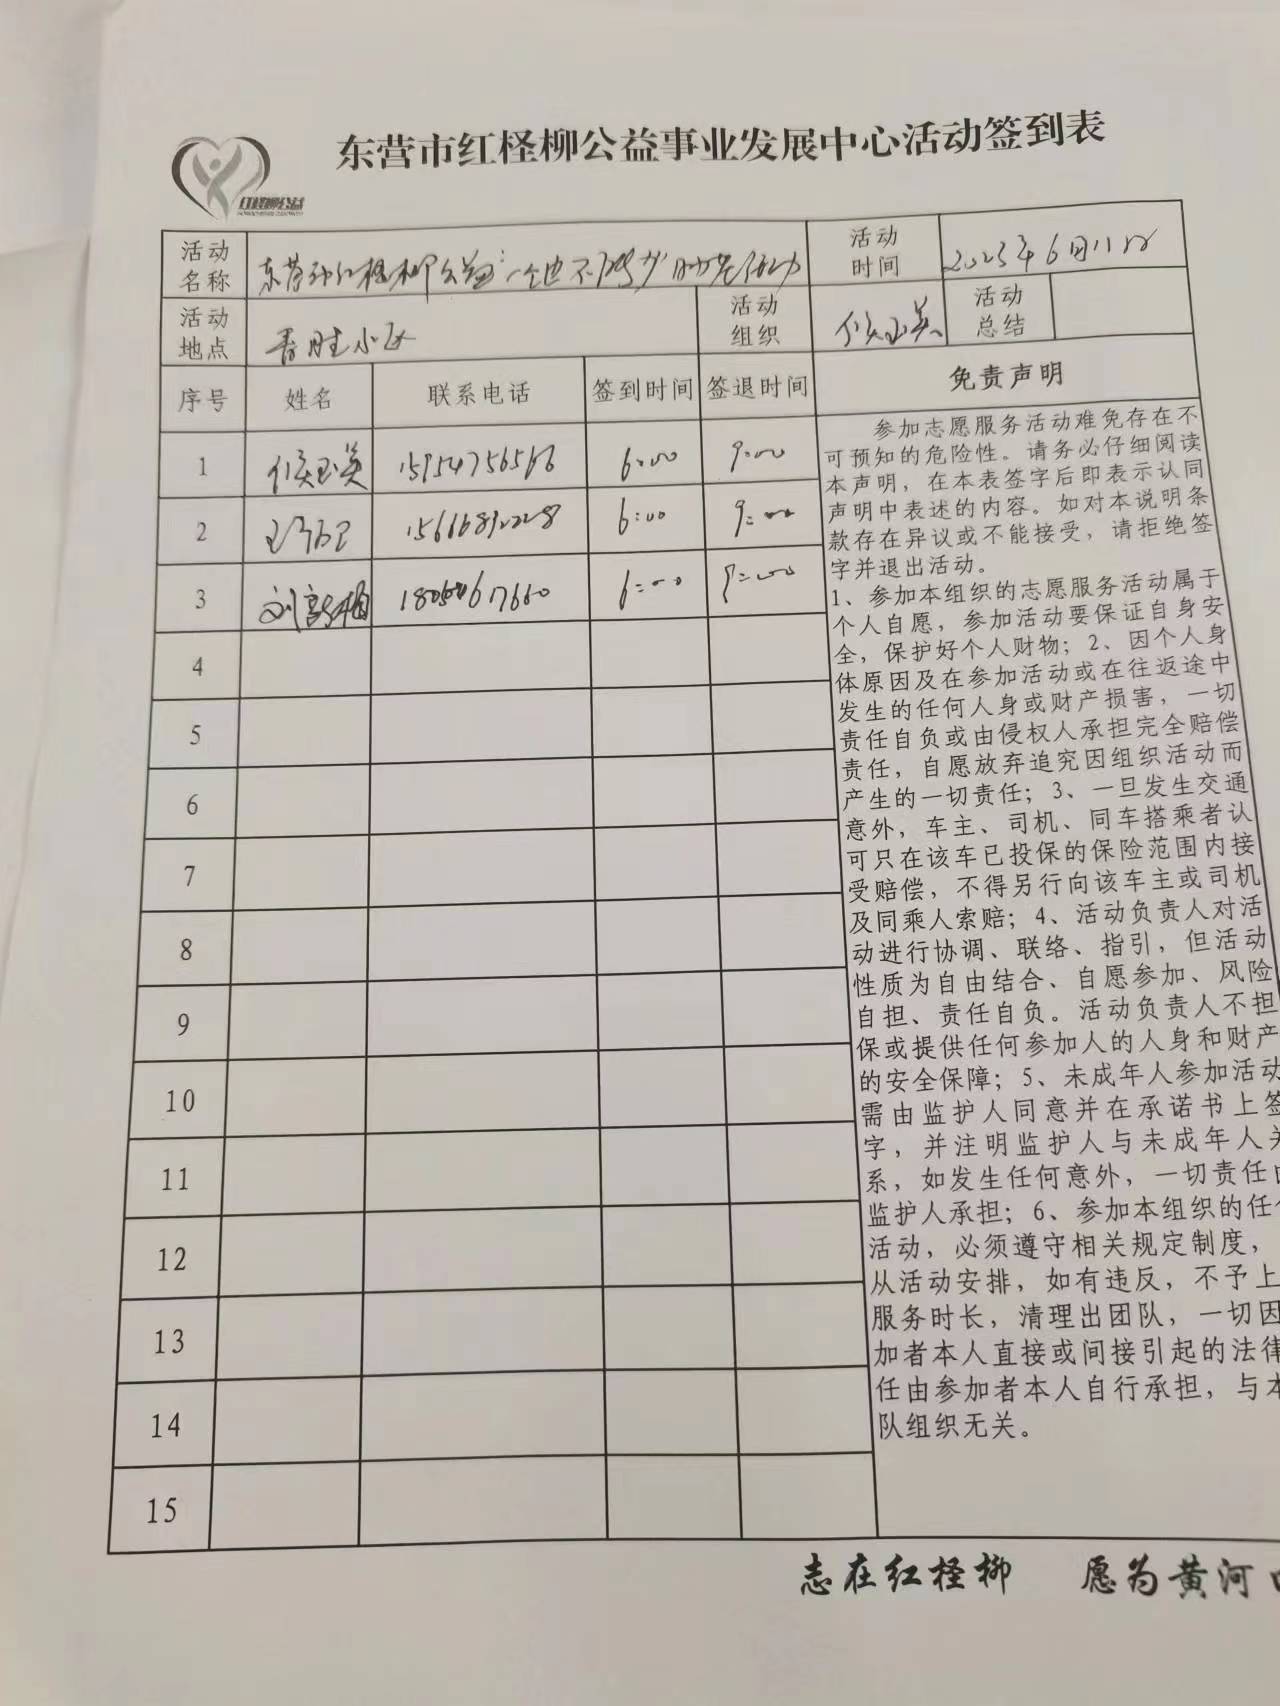 东营市红柽柳公益事业发展中心活动签到表
红柽柳公益
活动名称 东营市红柽柳公益:一个也不能少 活动
活动时间 2023年6月11日
活动地点 小区
活动组织 侯玉英
活动总结
序号 姓名 联系电话 签到时间 签退时间 免责声明
1 侯玉英 15954756566 6:00 9:00
2 6:00 9:00
3 刘 6:00 9:00
4
5
6
7
8
9
10
11
12
13
14
15
参加志愿服务活动难免存在不
可预知的危险性。请务必仔细阅读
本声明，在本表签字后即表示认同
声明中表述的内容。如对本说明条
款存在异议或不能接受，请拒绝签
字并退出活动。
1、参加本组织的志愿服务活动属于
个人自愿，参加活动要保证自身安
全，保护好个人财物；2、因个人身
体原因及在参加活动或在往返途中
发生的任何人身或财产损害，一切
责任自负或由侵权人承担完全赔偿
责任，自愿放弃追究因组织活动而
产生的一切责任；3、一旦发生交通
意外，车主、司机、同车搭乘者认
可只在该车已投保的保险范围内接
受赔偿，不得另行向该车主或司机
及同乘人索赔；4、活动负责人对活
动进行协调、联络、指引，但活动
性质为自由结合、自愿参加、风险
自担、责任自负。活动负责人不担
保或提供任何参加人的人身和财产
的安全保障；5、未成年人参加活动
需由监护人同意并在承诺书上签
字，并注明监护人与未成年人关
系，如发生任何意外，一切责任由
监护人承担；6、参加本组织的任
活动，必须遵守相关规定制度，
从活动安排，如有违反，不予上
服务时长，清理出团队，一切因
加者本人直接或间接引起的法律
任由参加者本人自行承担，与本
队组织无关。
志在红柽柳 愿为黄河